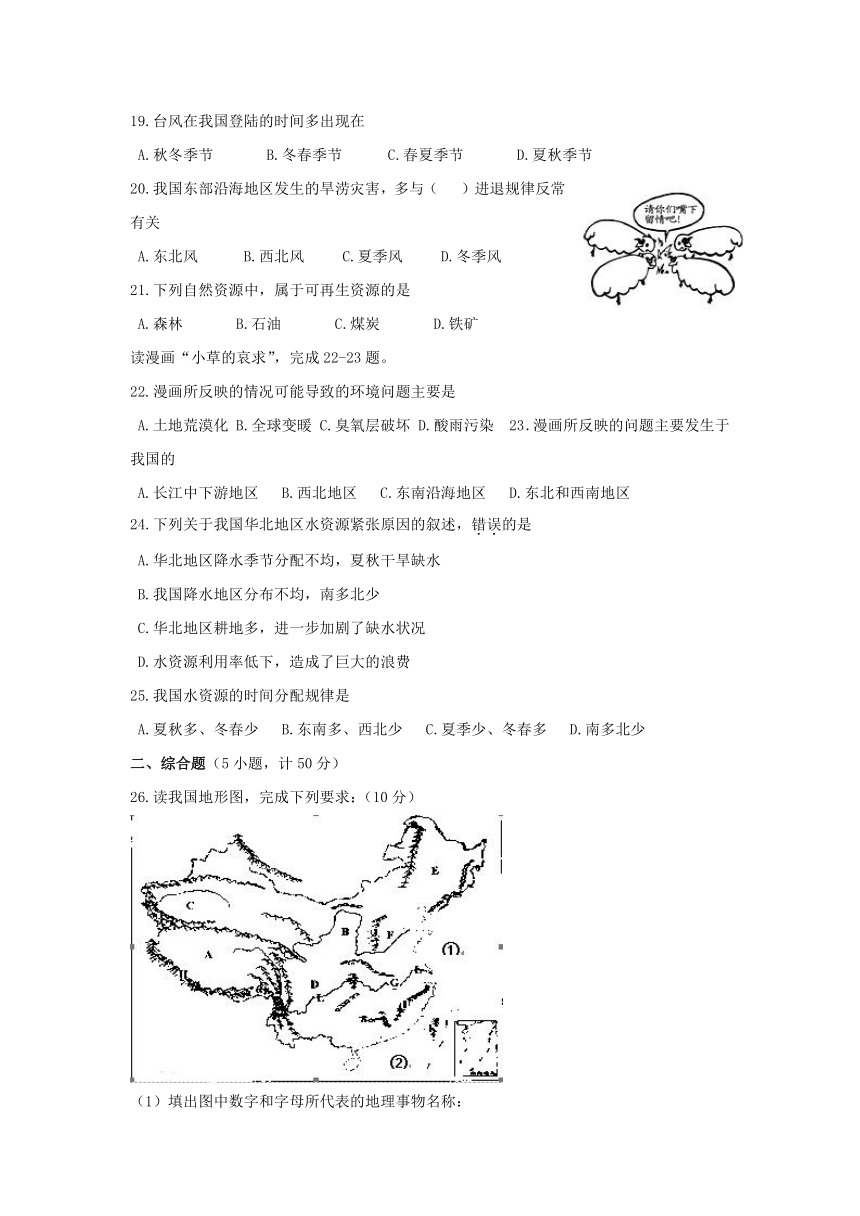 19.台风在我国登陆的时间多出现在
A.秋冬季节 B.冬春季节 C.春夏季节 D.夏秋季节
20.我国东部沿海地区发生的旱涝灾害,多与( )进退规律反常
有关
A.东北风 B.西北风 C.夏季风 D.冬季风
请你们嘴下
留情吧!
21.下列自然资源中,属于可再生资源的是
A.森林 B.石油 C.煤炭 D.铁矿
读漫画“小草的哀求”,完成22-23题。
22.漫画所反映的情况可能导致的环境问题主要是
A.土地荒漠化 B.全球变暖 C.臭氧层破坏 D.酸雨污染 23.漫画所反映的问题主要发生于
我国的
A.长江中下游地区 B.西北地区 C.东南沿海地区 D.东北和西南地区
24.下列关于我国华北地区水资源紧张原因的叙述,错误的是
A.华北地区降水季节分配不均,夏秋干旱缺水
B.我国降水地区分布不均,南多北少
C.华北地区耕地多,进一步加剧了缺水状况
D.水资源利用率低下,造成了巨大的浪费
25.我国水资源的时间分配规律是
A.夏秋多、冬春少 B.东南多、西北少 C.夏季少、冬春多 D.南多北少
二、综合题(5小题,计50分)
26.读我国地形图,完成下列要求:(10分)
E
C
B
J
F
①
A
H
D
G
L
I
②
(1)填出图中数字和字母所代表的地理事物名称: